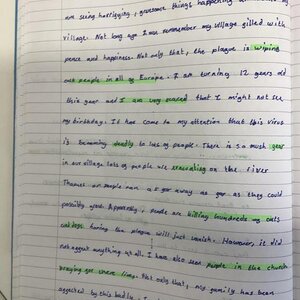 are seing horrifying, gruesome things happening
village. Not long ago I was remember my village filled with
peace and happiness. Not only that, the plague is wiping
out people in all of Europe. I am turning 12 years old
this year and I am very scared that I might not see
my birthday. It has come to my attention that this virus
is becoming deadly to lots of people. There is so much
in our village lots of people are on the river
Thames. People ran as far away as far as they could
possibly go. Apparently, people are killing hundreds of cats
hoping the plague will just vanish. However, it did
not affect anything at all. I have also seen people in the church
praying for there lives. Not only that, my family has been
affected by this badly. I